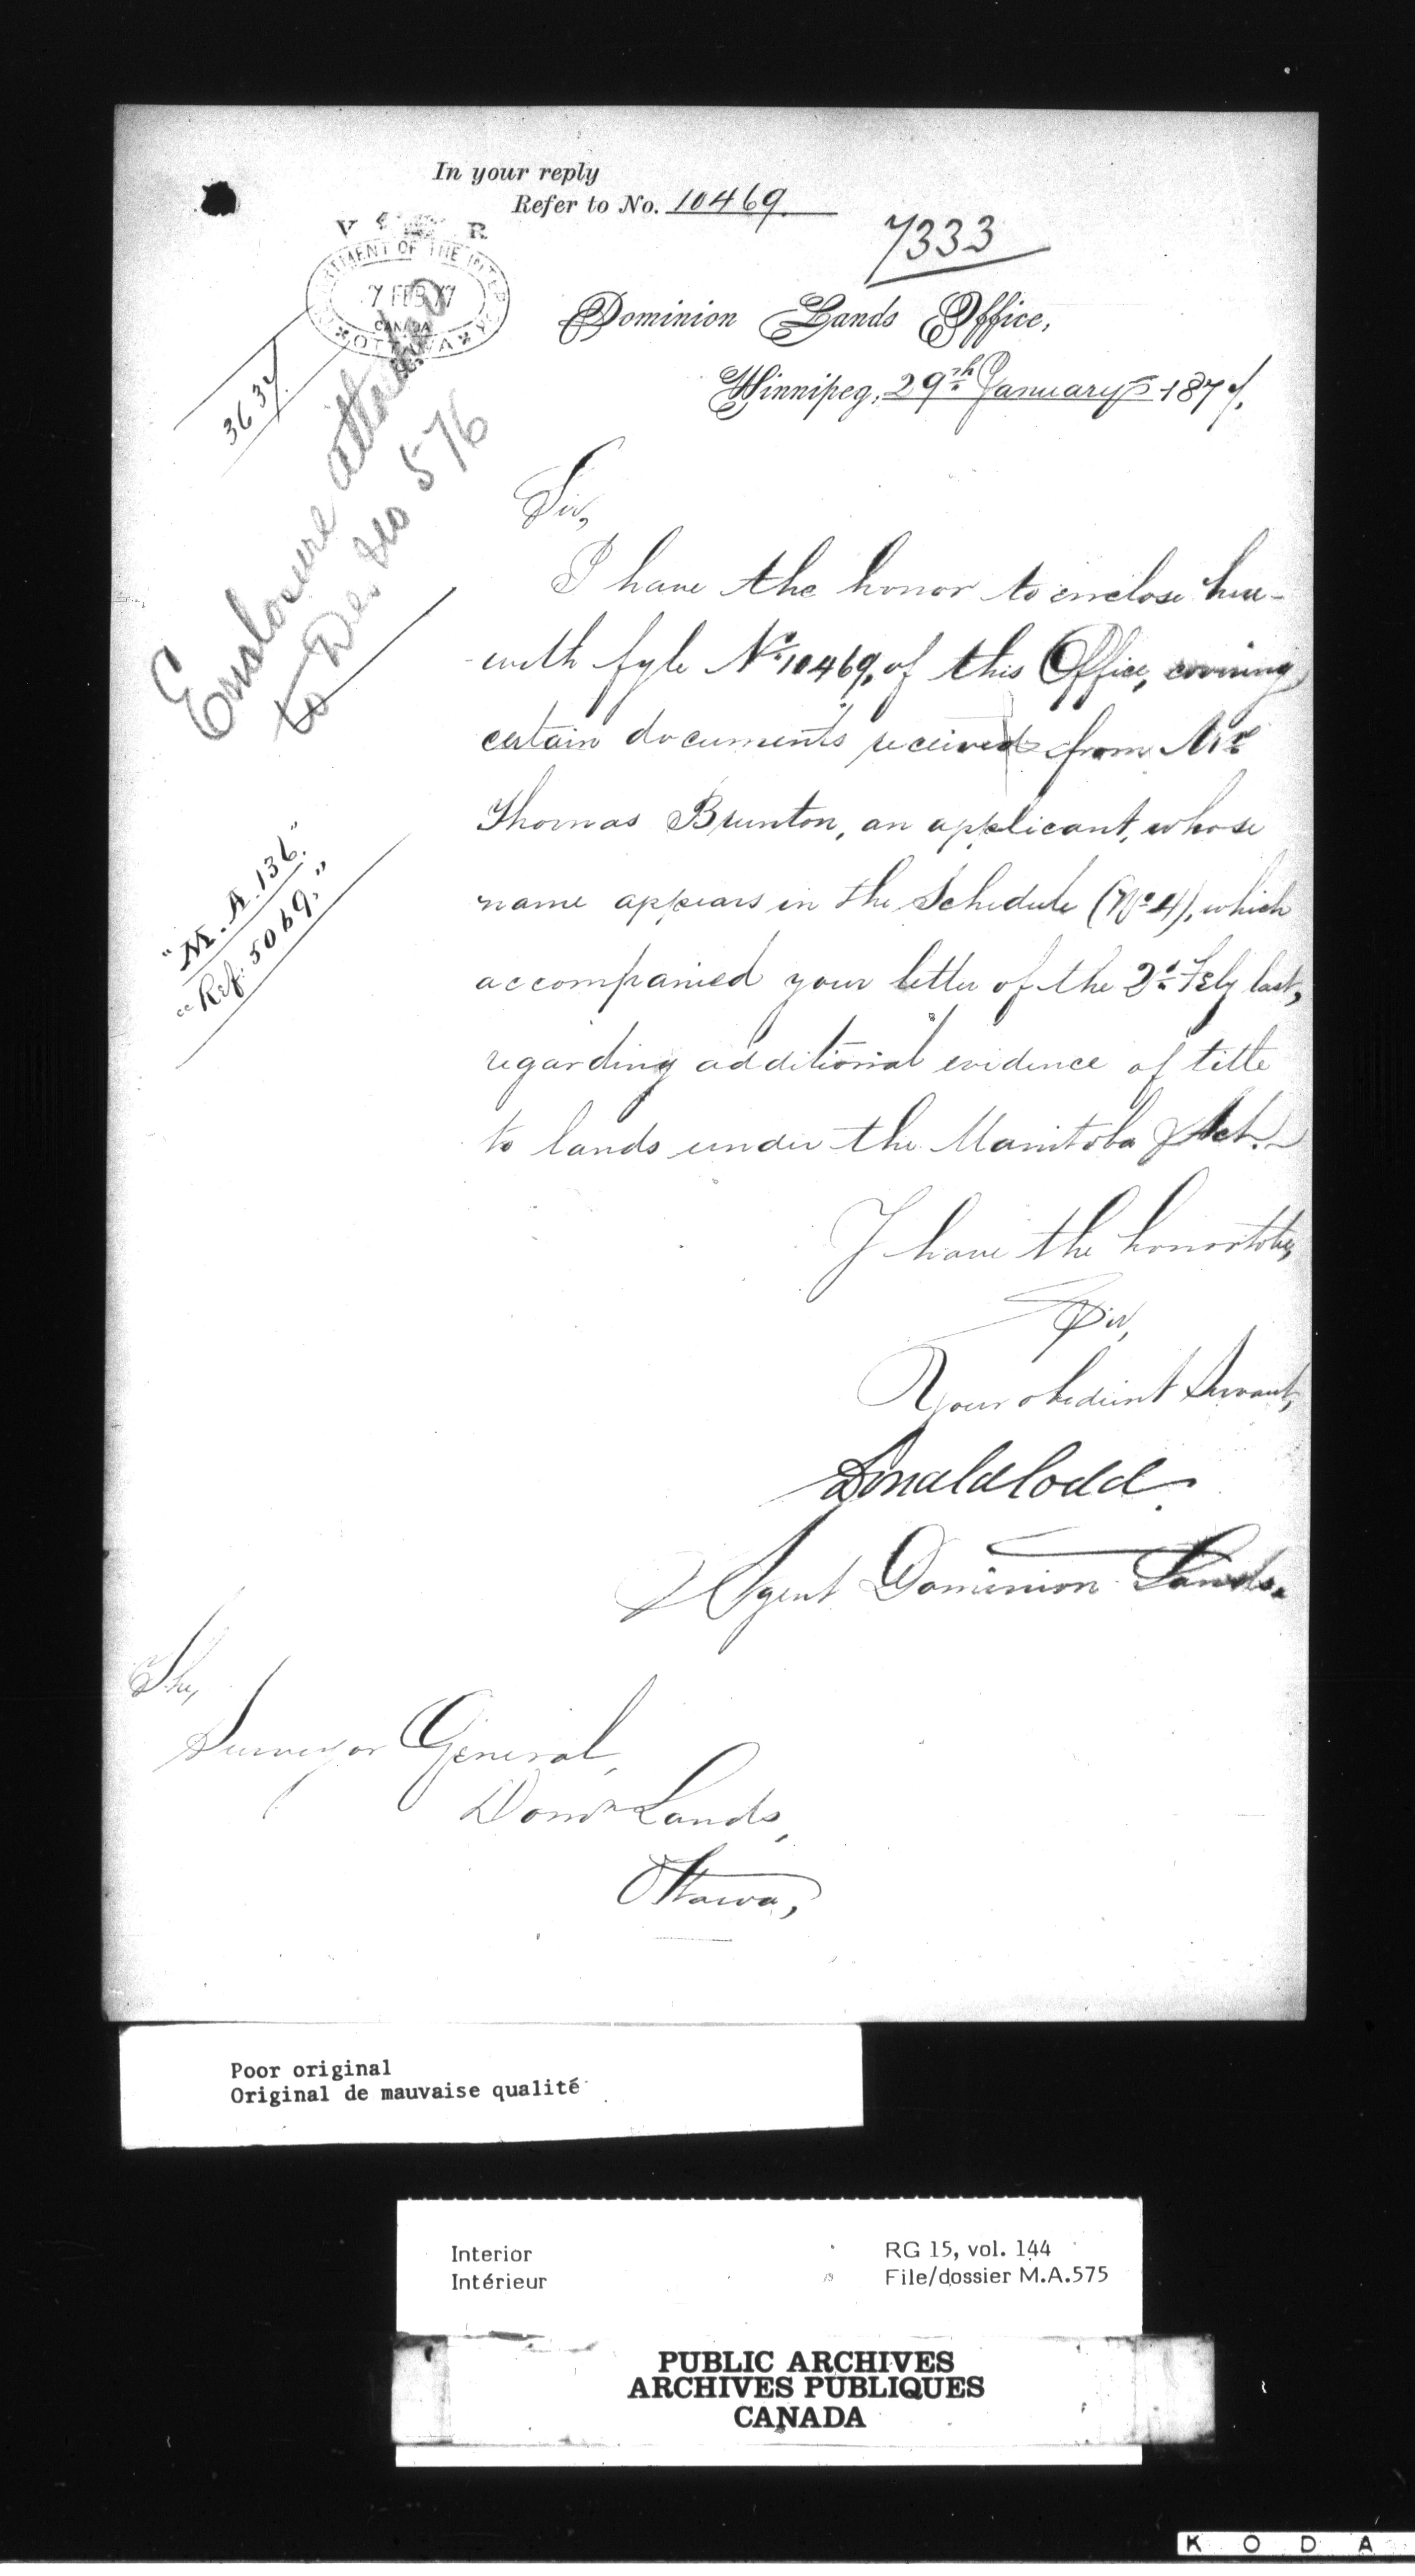 In your reply
Refer to No. 10469.
7333
V R
DEPARTMENT OF THE INTERIOR
7 FEB 77
CANADA
OTTAWA
Dominion Lands Office,
Winnipeg, 29th January 1877.
3637.
Enclosure attached
to Des No 576
"M. A. 136."
"Ref. 5069."
Sir,
I have the honor to enclose here-
-with fyle No. 10469, of this Office, covering
certain documents received from Mr.
Thomas Brunton, an applicant, whose
name appears in the Schedule (No. 4), which
accompanied your letter of the 2d. Feby last,
regarding additional evidence of title
to lands under the Manitoba Act.
I have the honor to be,
Sir,
Your obedient Servant,
Donald Codd.
Agent Dominion Lands.
The,
Surveyor General,
Domn Lands,
Ottawa,
Poor original
Original de mauvaise qualité
Interior RG 15, vol. 144
Intérieur File/dossier M.A.575
PUBLIC ARCHIVES
ARCHIVES PUBLIQUES
CANADA
K O D A